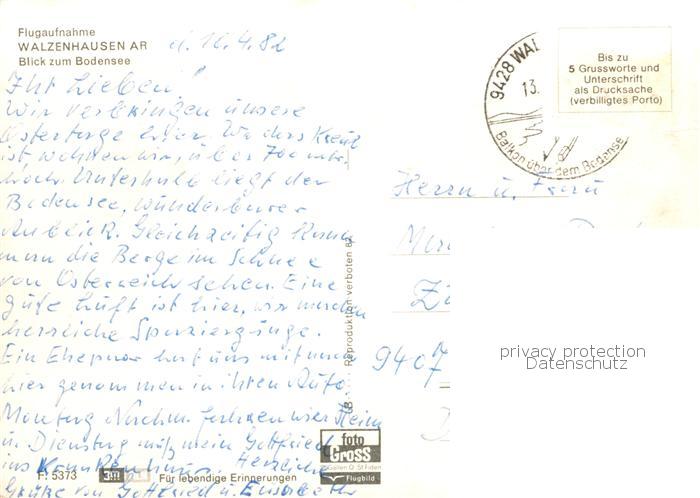 Flugaufnahme
WALZENHAUSEN AR
Blick zum Bodensee
d. 10.4.82
Ihr Lieben!
Wir verbringen unsere
Ostertage hier. Wo das Kreuz
ist wohnen wir, über 700 mtr.
hoch. Unterhalb liegt der
Bodensee, wunderbarer
Anblick. Gleichzeitig kann
man die Berge im Schnee
von Österreich sehen. Eine
gute Luft ist hier, wir machen
herrliche Spaziergänge.
Ein Ehepaar hat uns mit
hier genommen in ihren Auto
Montag Nachm. fahren wir Heim
u. Dienstag muß mein Gottfried
ins Krankenhaus. Herzliche
Grüße von Gottfried u.
9428 WAL
13.
Balkon über dem Bodensee
Bis zu
5 Grussworte und
Unterschrift
als Drucksache
(verbilligtes Porto)
Herrn u. Frau
9407
Reproduktion verboten
privacy protection
Datenschutz
foto
Gross
St Gallen O. St Fiden
Flugbild
F. 5373
Für lebendige Erinnerungen